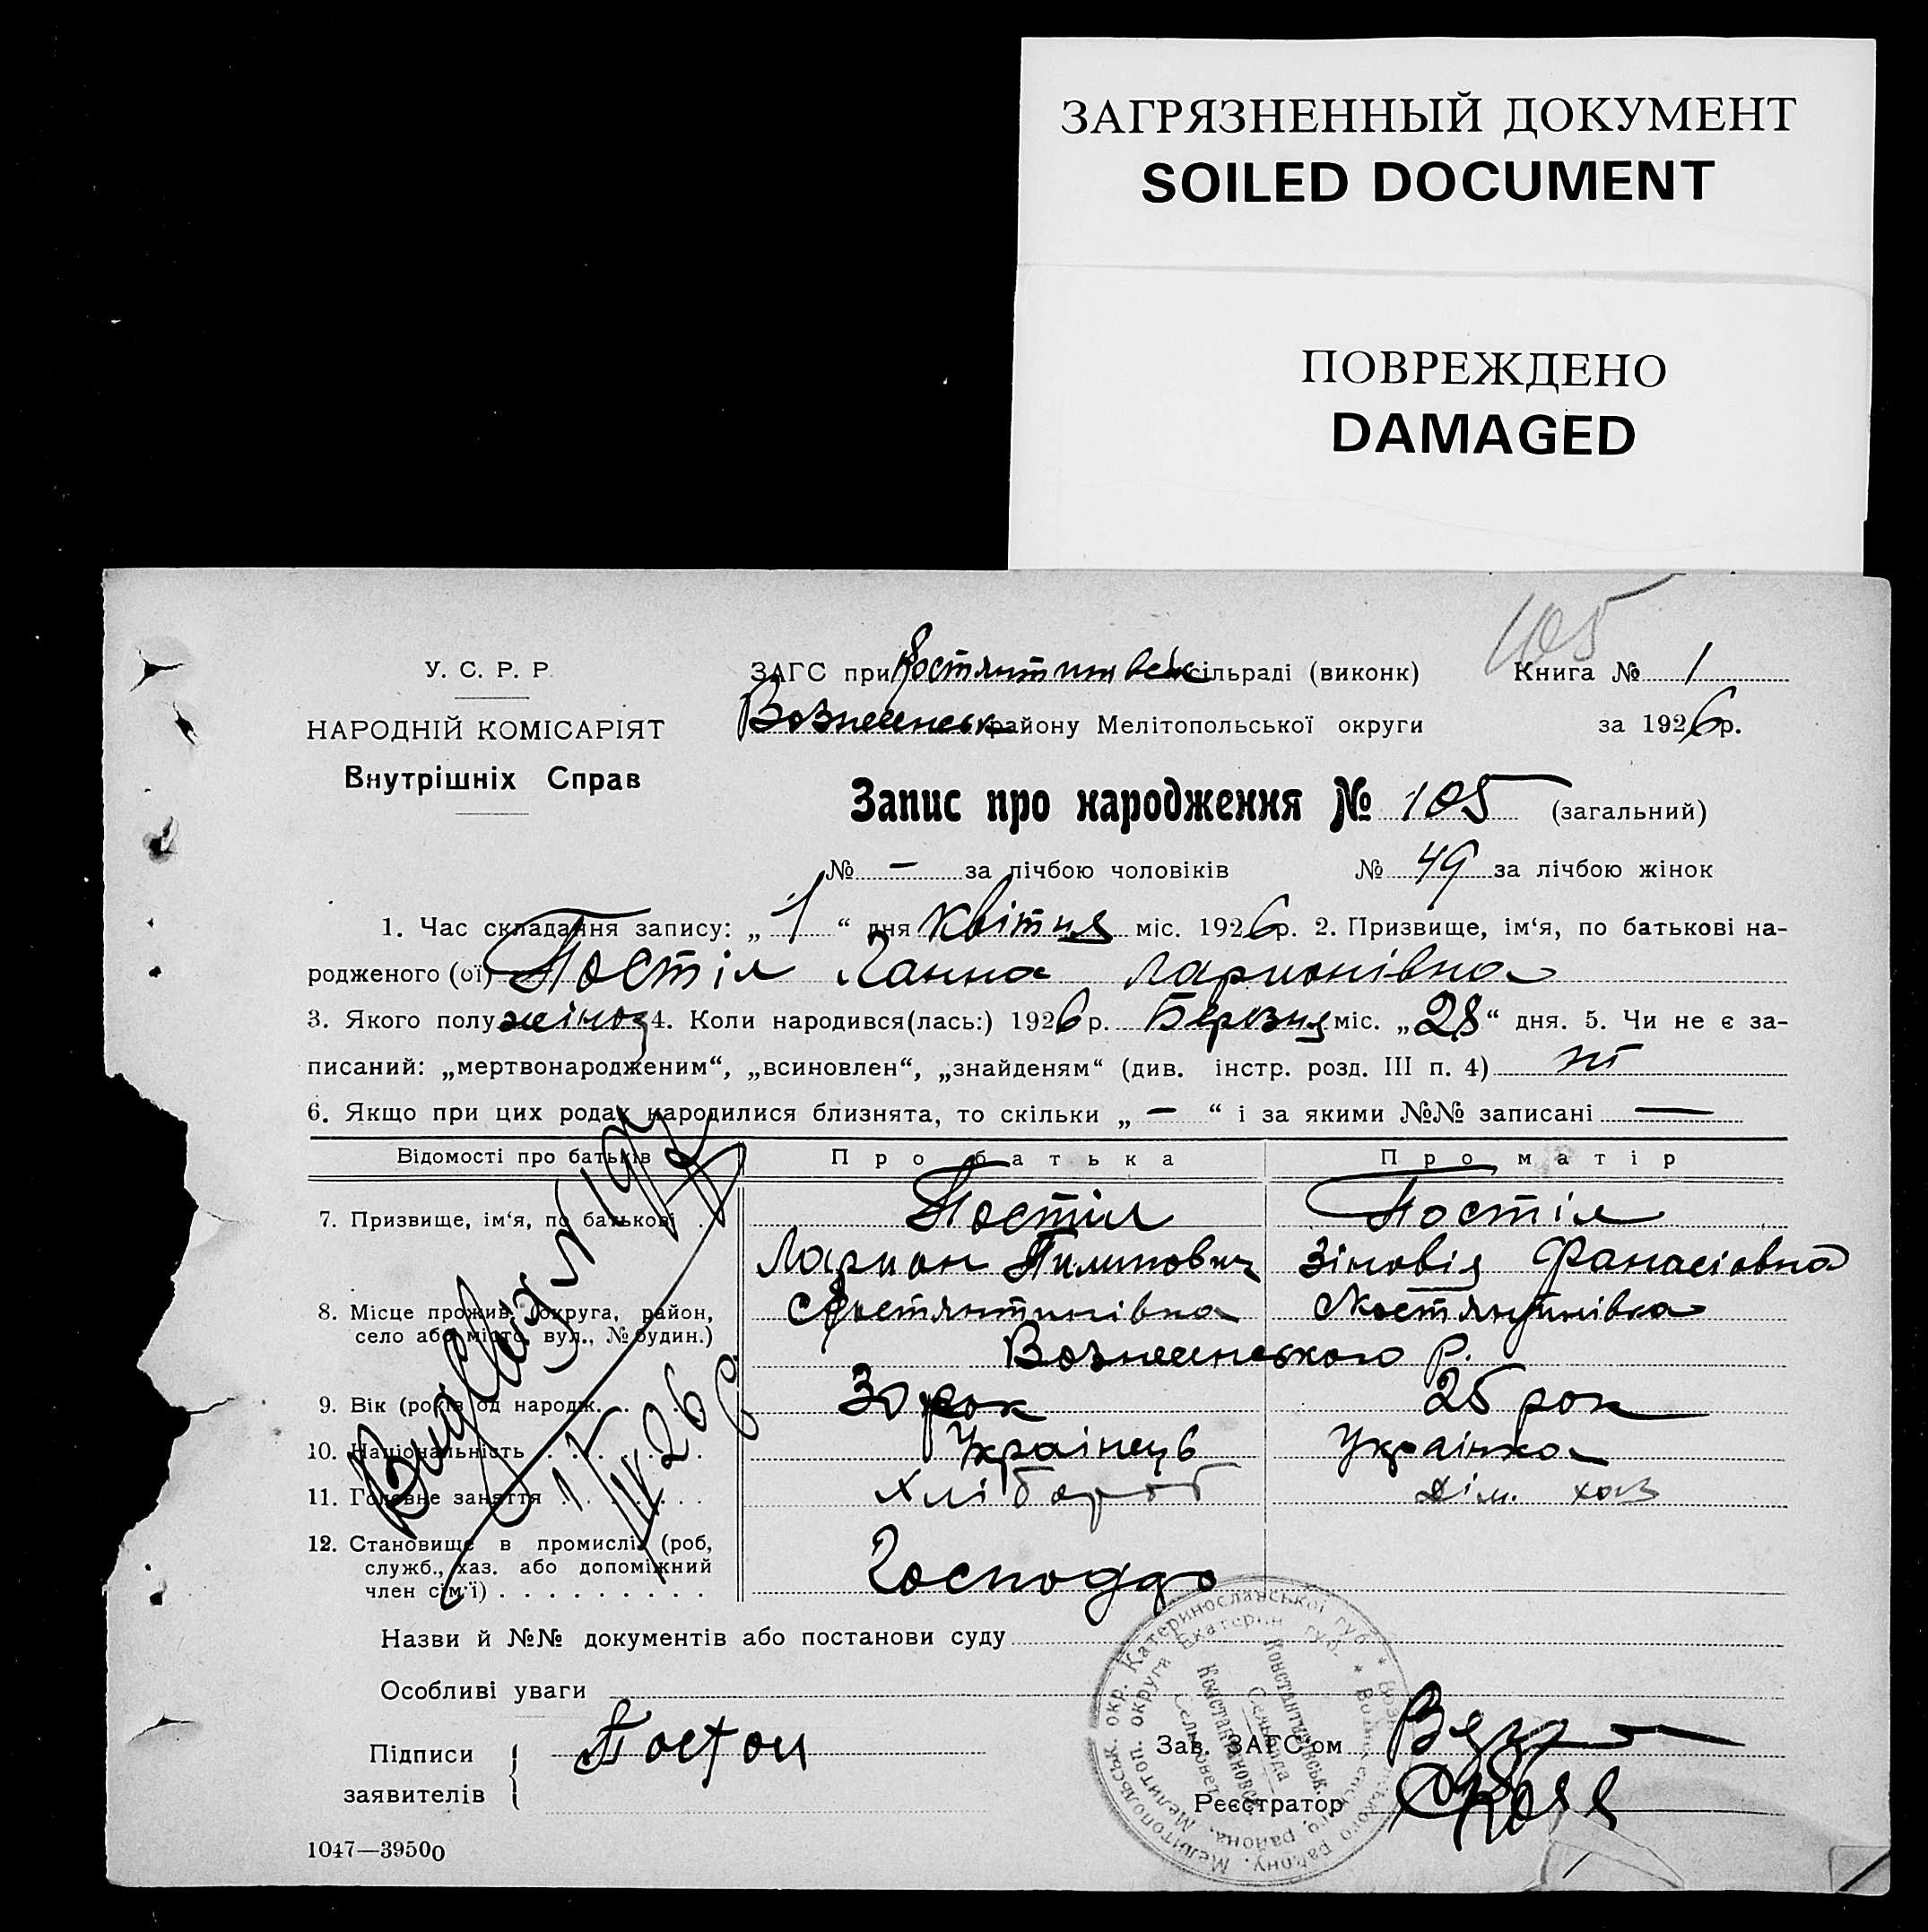 ЗАГРЯЗНЕННЫЙ ДОКУМЕНТ
SOILED DOCUMENT
ПОВРЕЖДЕНО
DAMAGED
105
У. С. Р. Р.
НАРОДНІЙ КОМІСАРІЯТ
Внутрішніх Справ
ЗАГС при Костянтинівськ сільраді (виконк)
Книга № 1
Вознесенськ району Мелітопольської округи
за 1926 р.
Запис про народження № 105 (загальний)
№ — за лічбою чоловіків № 49 за лічбою жінок
1. Час складання запису: „1“ дня квітня міс. 1926 р. 2. Призвище, ім‘я, по батькові на-
родженого (ої) Постіл Ганна Ларионівна
3. Якого полу жіноч 4. Коли народився(лась:) 1926 р. Березня міс. „28“ дня. 5. Чи не є за-
писаний: „мертвонародженим“, „всиновлен“, „знайденям“ (див. інстр. розд. III п. 4) ні
6. Якщо при цих родах народилися близнята, то скільки „ — “ і за якими №№ записані —
Відомості про батьків Про батька Про матір
7. Призвище, ім‘я, по батькові . Постіл Постіл
Ларион Пилипович Зіновія Фанасіовна
8. Місце прожив. (округа, район, село або місто, вул., № будин.) с Костянтинівка с Костянтинівка
Вознесенського Р.
9. Вік (років од народж. . . . . 30 рок 25 рок
10. Національність . . . . . . . Українець Українка
11. Головне заняття . . . . . . . хлібороб дім. хаз
12. Становище в промислі (роб,
служб., хаз. або допоміжний
член сім‘ї) . . . . . . . . . Господар
Назви й №№ документів або постанови суду
Особливі уваги
Підписи
заявителів
Зав. ЗАГС‘ом
Реєстратор
1047—39500